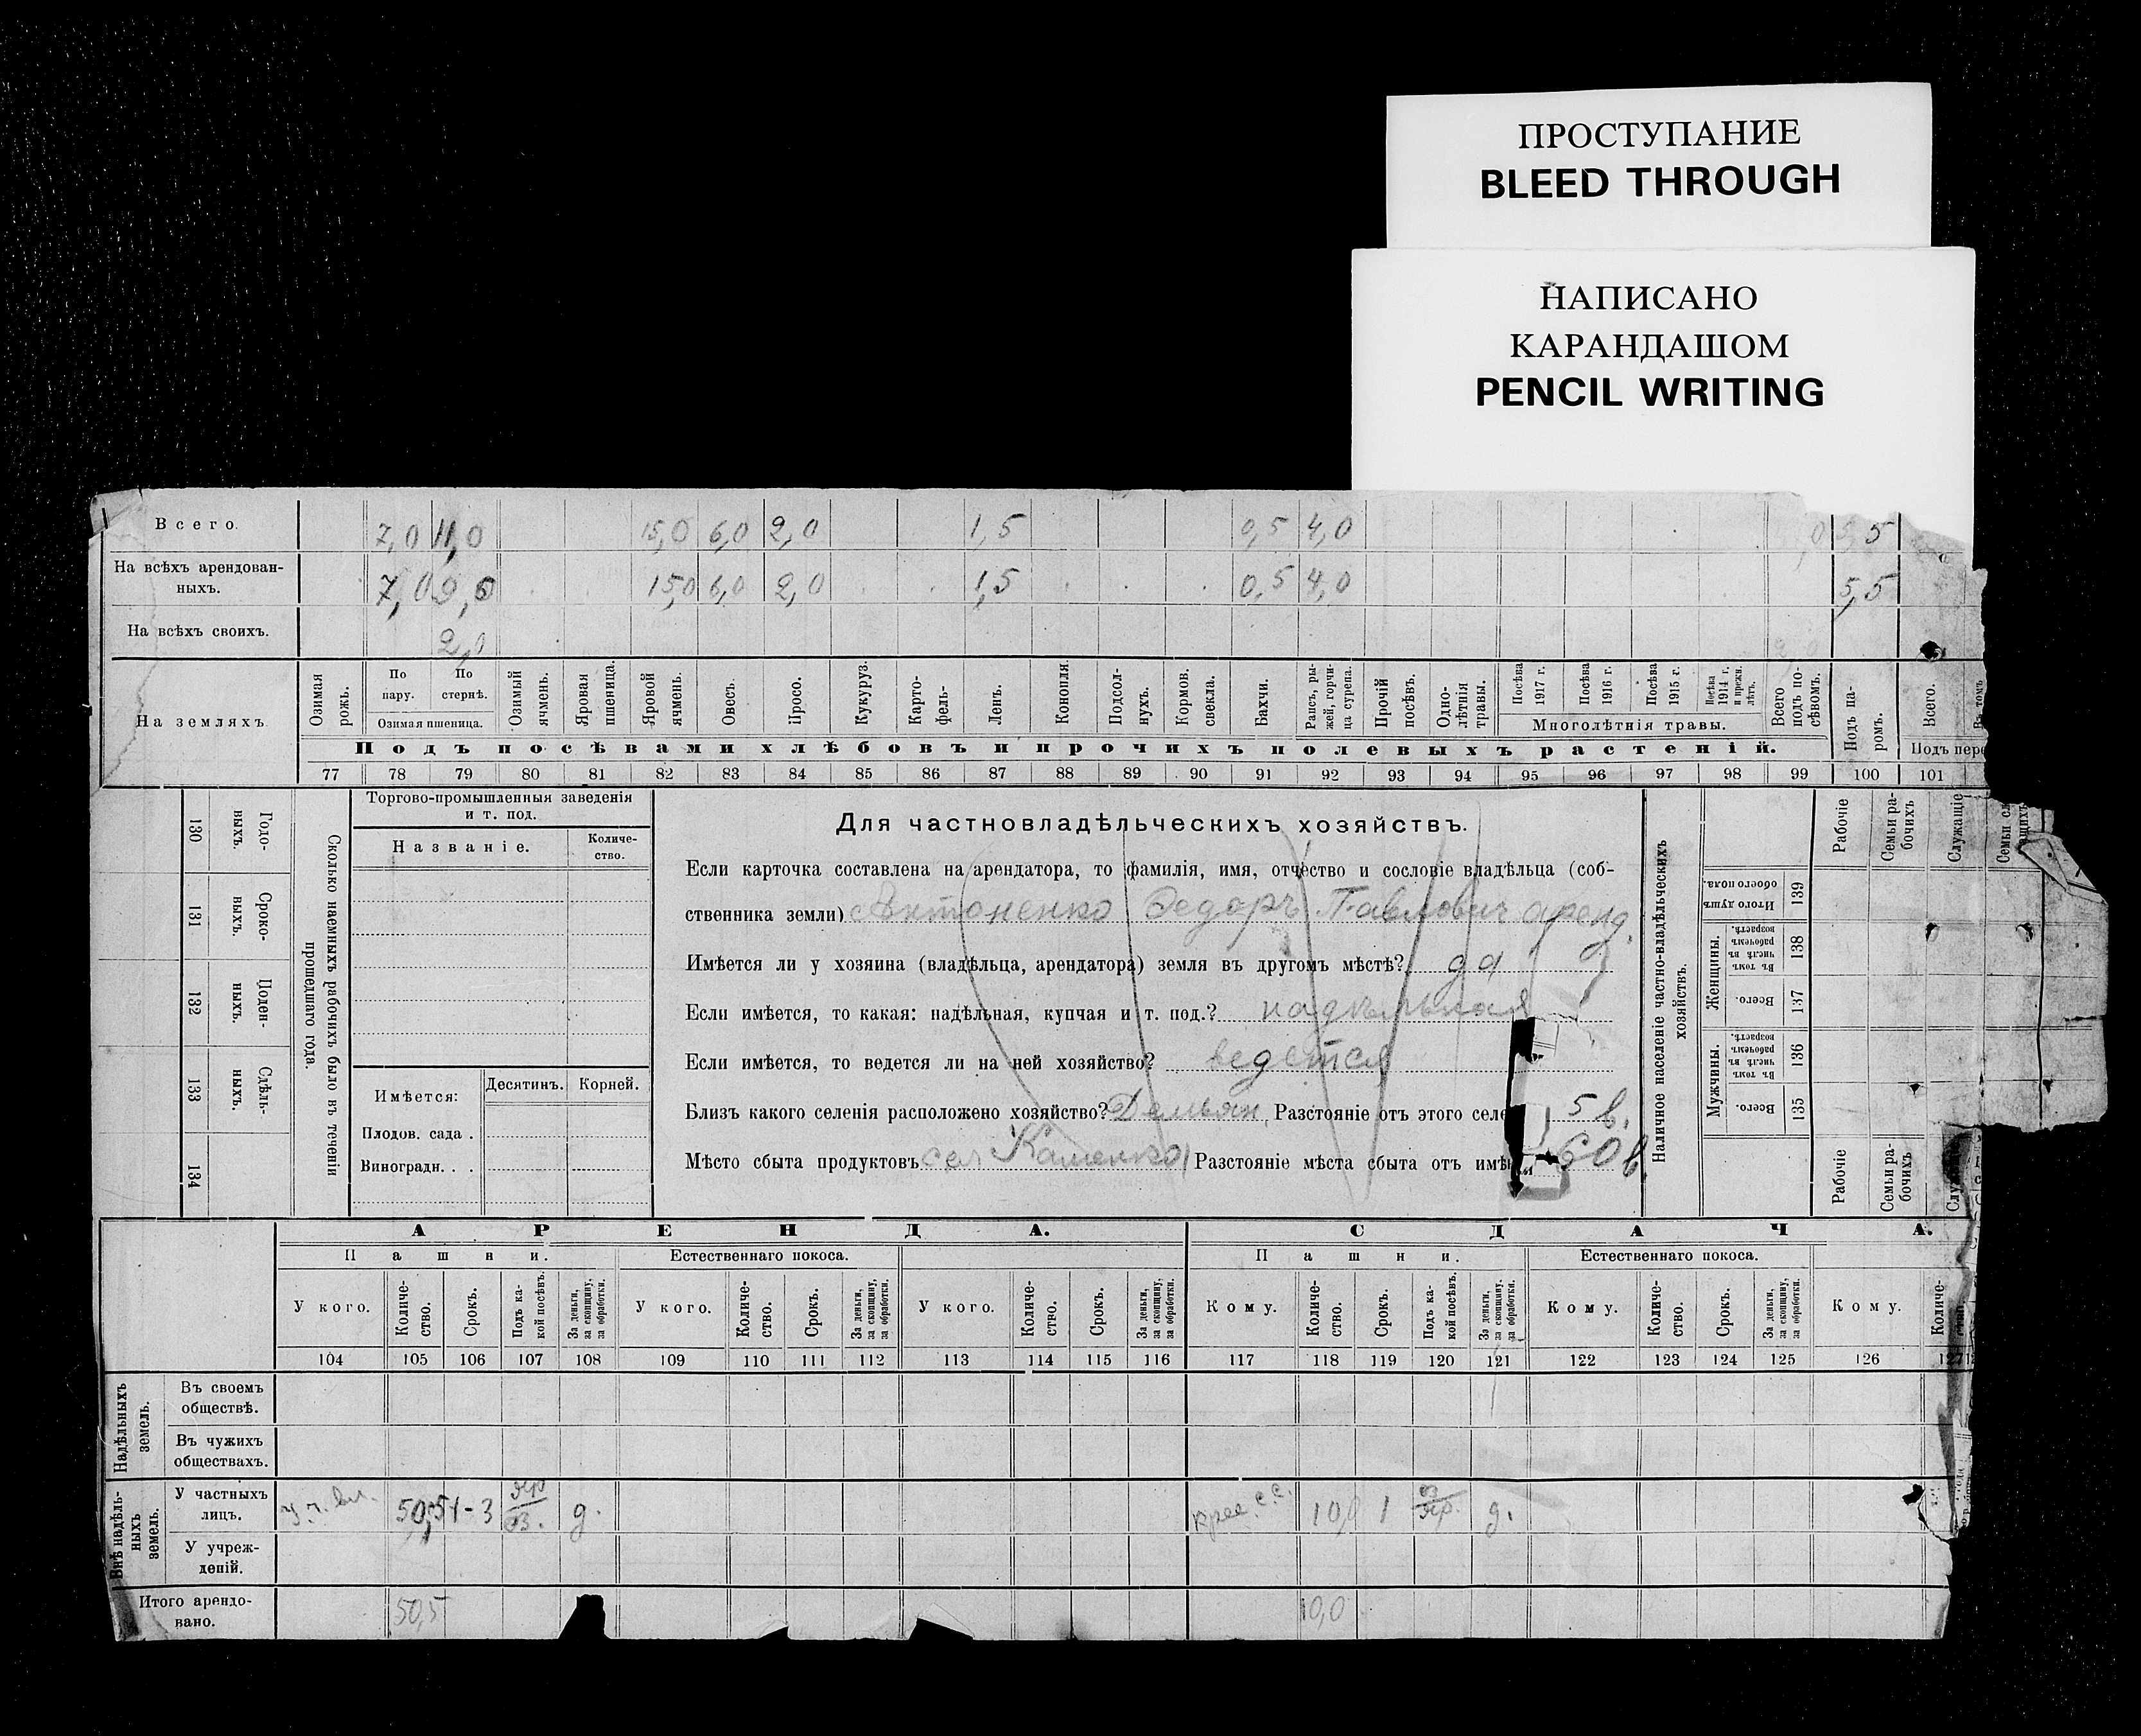 ПРОСТУПАНИЕ
BLEED THROUGH
НАПИСАНО
КАРАНДАШОМ
PENCIL WRITING
Всего. 7,0 11,0 15,0 6,0 2,0 1,5 0,5 4,0 5,5
На всѣхъ арендован-
ныхъ. 7,0 9,0 15,0 6,0 2,0 1,5 0,5 4,0 5,5
На всѣхъ своихъ. 2,0
На земляхъ
Озимая рожь.
По пару.
По стернѣ.
Озимая пшеница.
Озимый ячмень.
Яровая пшеница.
Яровой ячмень.
Овесъ.
Просо.
Кукуруз.
Карто-
фель-
Ленъ.
Конопля
Подсол-
нухъ.
Кормов.
свекла.
Бахчи.
Рапсъ, ры-
жей, горчи-
ца сурепа.
Прочій
посѣвъ.
Одно-
лѣтнія
травы.
Посѣва
1917 г.
Посѣва
1916 г.
Посѣва
1915 г.
Посѣва
1914 г.
и прежн.
лѣтъ.
Многолѣтнія травы.
Всего
подъ по-
сѣвомъ.
Подъ па-
ромъ.
Всего.
Въ томъ
Подъ пере
Подъ посѣвами хлѣбовъ и прочихъ полевыхъ растеній.
77 78 79 80 81 82 83 84 85 86 87 88 89 90 91 92 93 94 95 96 97 98 99 100 101
130 Годо-
выхъ.
131 Сроко-
выхъ.
132 Поден-
ныхъ.
133 Сдѣль-
ныхъ.
134
Сколько наемныхъ рабочихъ было въ теченіи
прошедшаго года.
Торгово-промышленныя заведенія
и т. под.
Названіе.
Количе-
ство.
Имѣется:
Десятинъ.
Корней.
Плодов. сада .
Виноградн. . .
Для частновладѣльческихъ хозяйствъ.
Если карточка составлена на арендатора, то фамилія, имя, отчество и сословіе владѣльца (соб-
ственника земли) Антоненко Федоръ Павлович аренд.
Имѣется ли у хозяина (владѣльца, арендатора) земля въ другомъ мѣстѣ? да
Если имѣется, то какая: надѣльная, купчая и т. под.? надѣльная
Если имѣется, то ведется ли на ней хозяйство? ведется
Близъ какого селенія расположено хозяйство? Демьян Разстояніе отъ этого селе 5 в.
Мѣсто сбыта продуктовъ Каменка Разстояніе мѣста сбыта отъ имѣ 60 в.
Наличное населеніе частно-владѣльческихъ
хозяйствъ.
Итого душъ
обоего пола.
139
Женщины.
Въ томъ
числѣ въ
рабочемъ
возрастѣ.
138
Всего.
137
Мужчины.
Въ томъ
числѣ въ
рабочемъ
возрастѣ.
136
Всего.
135
Рабочіе
Семьи ра-
бочихъ
Служащіе
Рабочіе
Семьи ра-
бочихъ
АРЕНДА.
СДАЧА.
Пашни.
Естественнаго покоса.
Пашни.
Естественнаго покоса.
У кого.
Количе-
ство.
Срокъ.
Подъ ка-
кой посѣвъ.
За деньги,
за скопщину,
за обработки.
У кого.
Количе-
ство.
Срокъ.
За деньги,
за скопщину,
за обработки.
У кого.
Количе-
ство.
Срокъ.
За деньги,
за скопщину,
за обработки.
Кому.
Количе-
ство.
Срокъ.
Подъ ка-
кой посѣвъ.
За деньги,
за скопщину,
за обработки.
Кому.
Количе-
ство.
Срокъ.
За деньги,
за скопщину,
за обработки.
Кому.
Количе-
104 105 106 107 108 109 110 111 112 113 114 115 116 117 118 119 120 121 122 123 124 125 126
Надѣльныхъ
земель.
Въ своемъ
обществѣ.
Въ чужихъ
обществахъ.
Внѣ надѣль-
ныхъ
земель.
У частныхъ
лицъ. у ч. вл. 50,5 1-3 яр оз. д. крес. с.с. 10,0 1 оз яр. д.
У учреж-
деній.
Итого арендо-
вано. 50,5 10,0